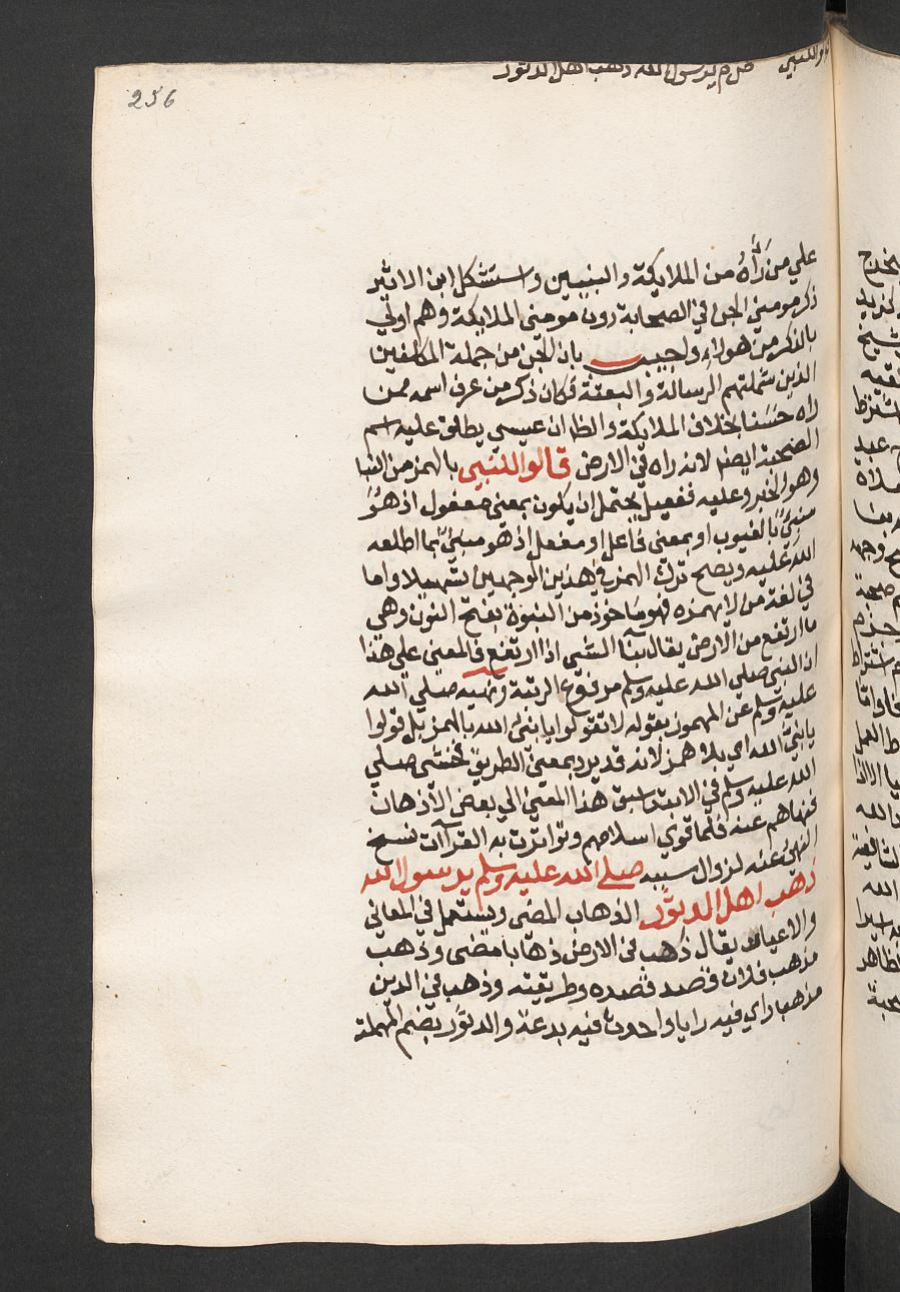 256
او للنبي ص م يرسول الله ذهب اهل الدثور
علي من رَآهُ من الملايكة والنبيين واستشكل ابن الاثير
ذكر مومني الجن في الصحابة دون مومني الملايكة وهم اولي
بالذكر من هولاءِ واجيب بان الجن من جملة المكلفين
الذين شملتهم الرسالة والبعثة فكان ذكر من عرف اسمه ممن
راه حَسَنا بخلاف الملايكة والظا ان عيسي يطلق عليه اسم
الصحبة ايضا لانه راه في الارض قالوا للنبي بالهمز من النبا
وهو الخبر وعليه ففعيل يحتمل ان يكون بمعني مفعول اذ هُوَ
منبئ بالغيوب او بمعني فاعل او مفعل اذ هو منبئ بما اطلعه
الله عليه ويصح ترك الهمز في هذين الوجهين تسهيلا واما
في لغة من لا يهمزه فهو ماخوذ من النبوة بفتح النون وهي
ما ارتفع من الارض يقال نبآ الشي اذا ارتفع فالمعني علي هذا
ان النبي صلي الله عليه وسلم مرفوع الرتبة ونهيه صلي الله
عليه وسلم عن المهموز بقوله لا تقولوا يا نبئ الله بالهمز بل قولوا
يا نبيّ الله اي بلا همز لانه قد يرد بمعني الطريق فخشي صلي
الله عليه وسلم في الابتدا سبق هذا المعني الي بعض الاذهان
فنهاهم عنه فلما قوي اسلامهم وتواترت به القرآات نسخ
النهي عنه لزوال سببه صلي الله عليه وسلم يرسول الله
ذهب اهل الدثور الذهاب المضي ويستعمل في المعاني
والاعيان يقال ذهب في الارض ذهابا مضي وذهب
مذهب فلان قصد قصده وطريقته وذهب في الدين
مذهبا راي فيه رايا واحدث فيه بدعة والدثور بضم المهملة